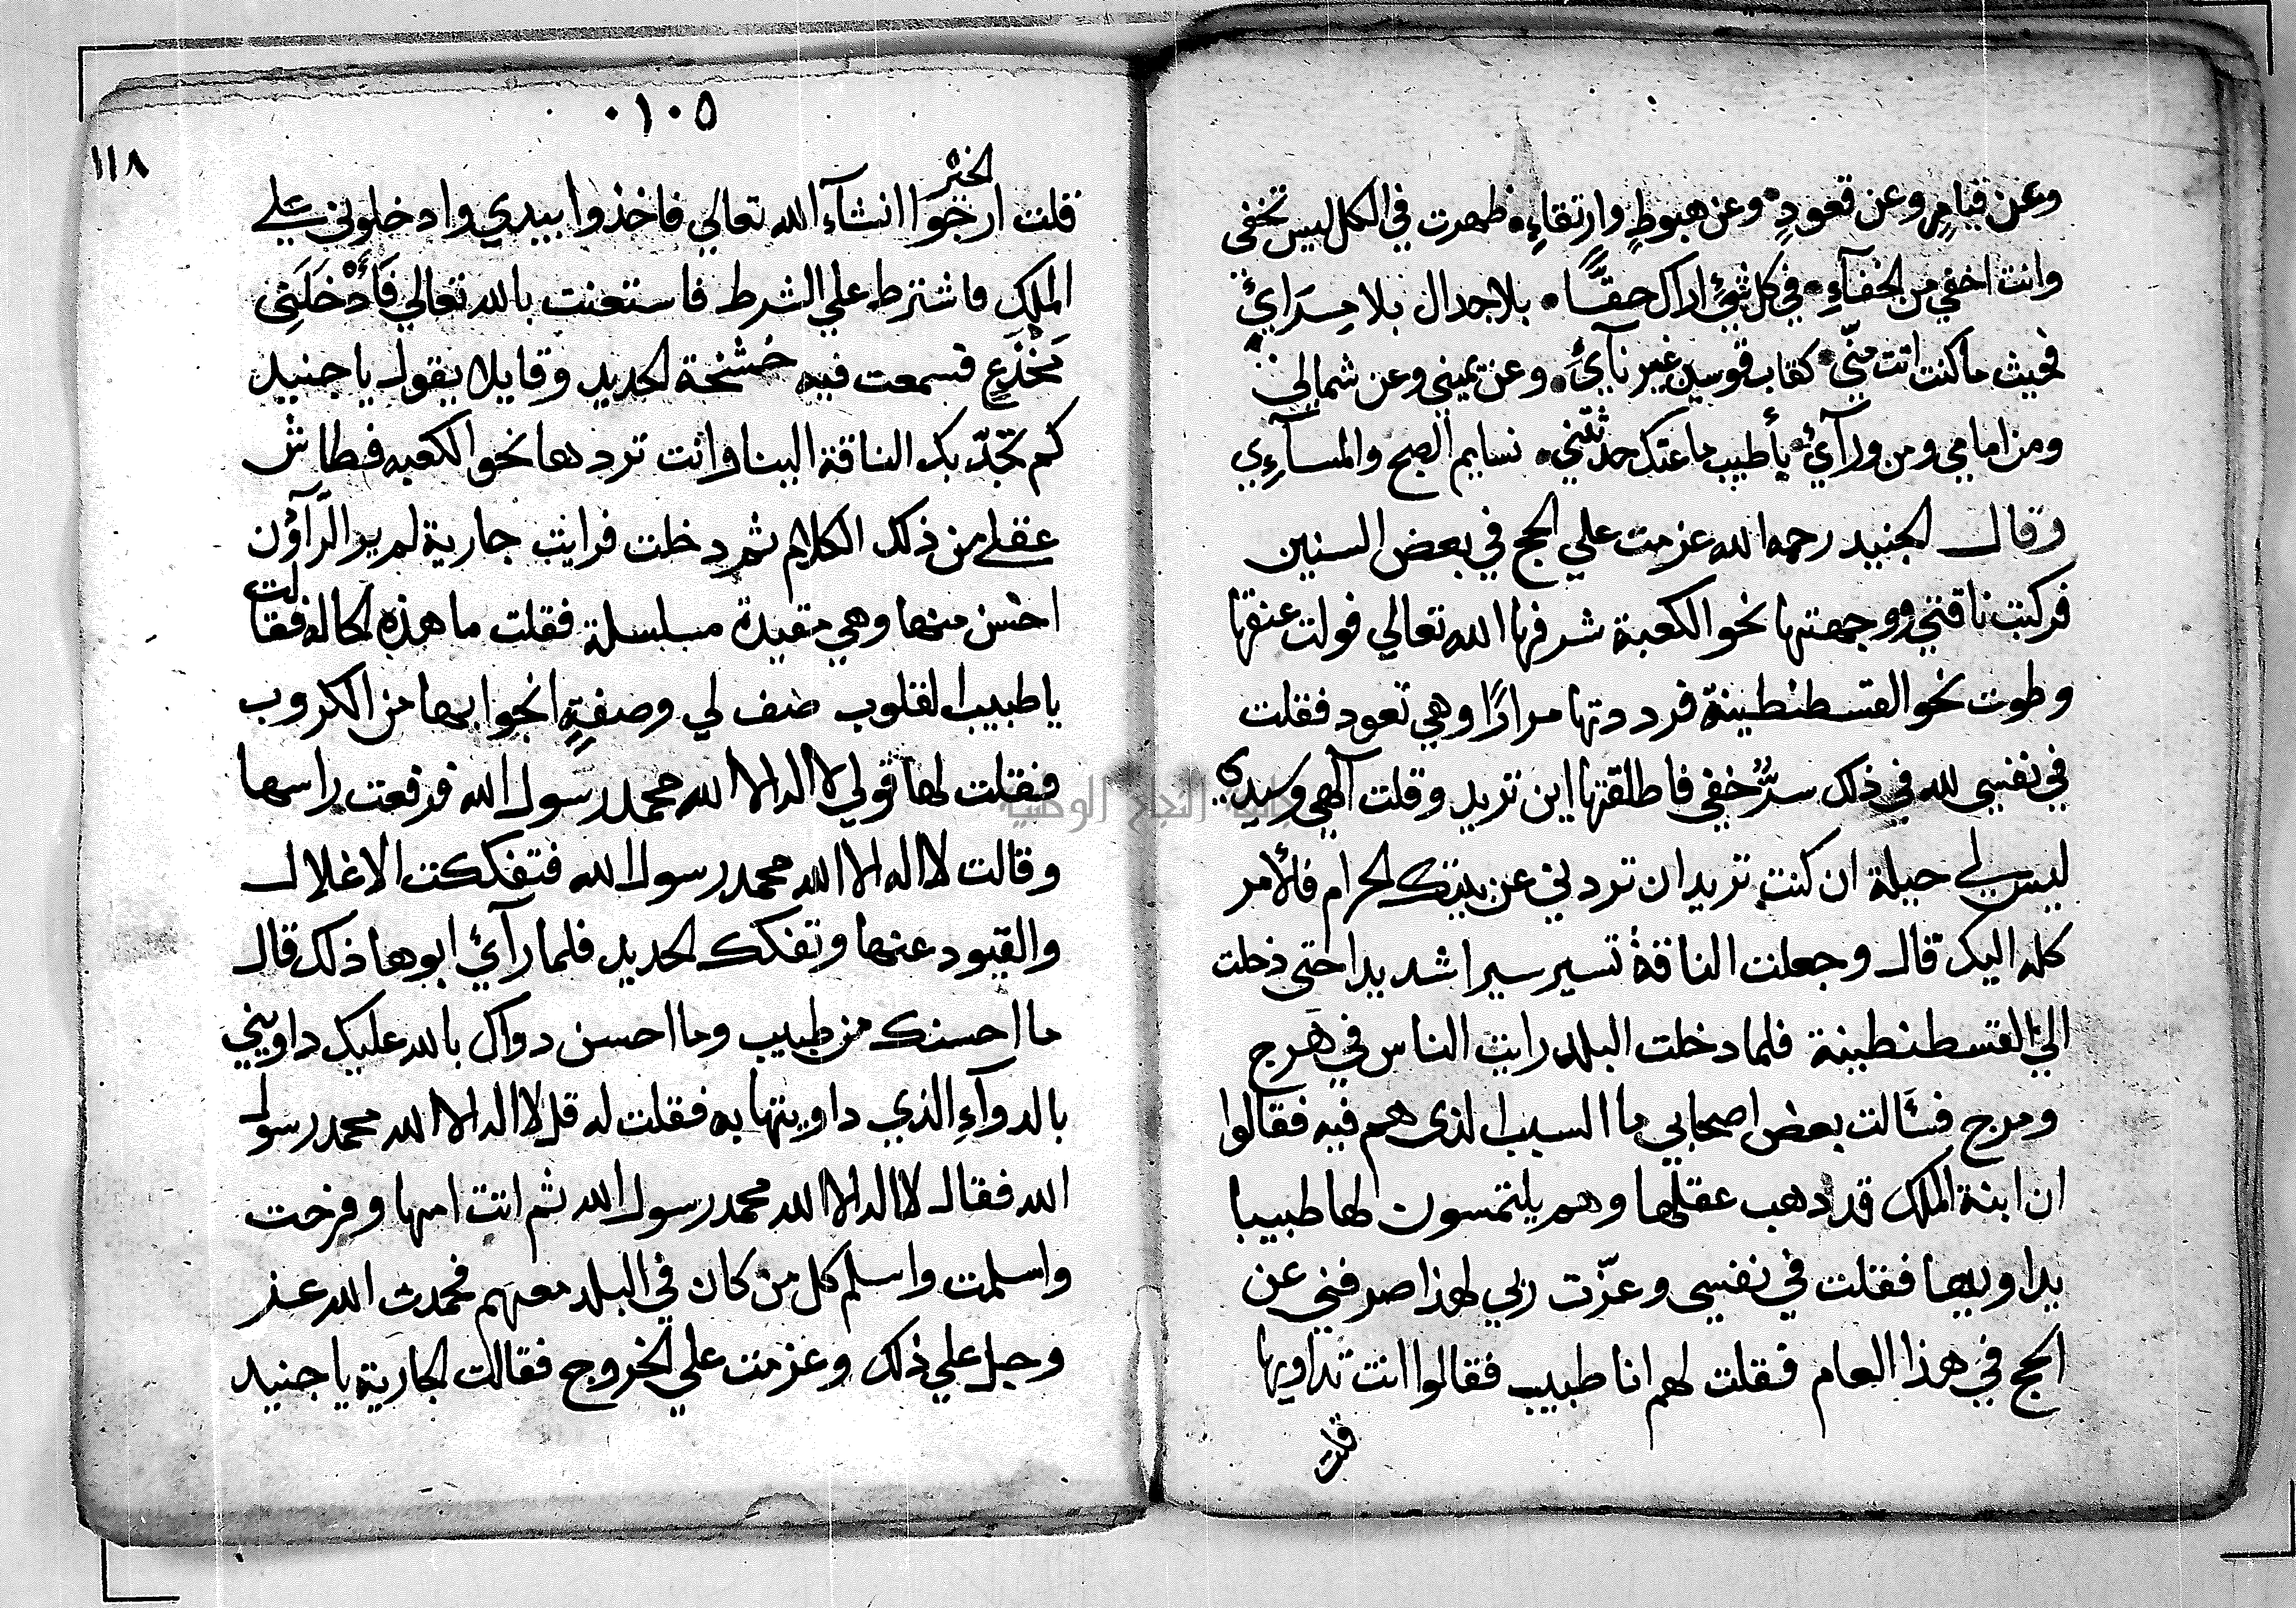 وعن قيامٍ وعن قعودٍ وعن هبوطٍ وارتقاءٍ ظهرت في الكل ليس تخفي
وانت اخفي من الخفآءِ في كل شيءٍ اراك حقًّا بلا جدال بلا مِرَايٍ
فحيث ما كنت انت منّي كقاب قوسين غير نآيٍ وعن يميني وعن شمالي
ومن امامي ومن ورآيٍ يأطيب ما عنك حدثتني نسايم الصبح والمسآءِي
وقال الجنيد رحمه الله عزمت علي الحج في بعض السنين
فركبت ناقتي ووجهتها نحو الكعبة شرفها الله تعالي فولت عنقها
وطوت نحو القسطنطينة فرددتها مرارًا وهي تعود فقلت
في نفسي لله في ذلك سرٌّ خفي فاطلقتها اين تريد وقلت آلهي وسيدي
ليس لي حيلة ان كنت تريد ان تردني عن بيتك الحرام فالأمر
كله اليك قال وجعلت الناقة تسير سيرا شديدا حتى دخلت
الي القسطنطينة فلما دخلت البلد رايت الناس في هَرج
ومرج فسَالت بعض اصحابي ما السبب الذي هم فيه فقالوا
ان ابنة الملك قد ذهب عقلها وهم يلتمسون لها طبيبا
يداويها فقلت في نفسي وعزّت ربي لهذا صرفني عن
الحج في هذا العام فقلت لهم انا طبيب فقالوا انت تداويها
قلت
٠١٠٥
١١٨
الخير
قلت ارجوا انشآء الله تعالي فاخذوا بيدي وادخلوني علي
الملك فاشترط علي الشرط فاستعنت بالله تعالي فَأَدْخَلَنِي
مَخْدَعٍ فسمعت فيه خشخة الحديد وقايلا يقول يا جنيد
كم تجدّ بك الناقة الينا وانت تردها نحو الكعبه فطاش
عقلي من ذلك الكلام ثم دخلت فرايت جارية لم ير الرآؤن
احسن منها وهي مقيدة مسلسلة فقلت ما هذه الحاله فقالت
يا طبيب القلوب صف لي وصفةٍ انجوا بها من الكروب
فقلت لها قولي لا اله الا الله محمد رسول الله فرفعت راسها
وقالت لا اله الا الله محمد رسول الله فتفككت الاغلال
والقيود عنها وتفكك الحديد فلما رآي ابوها ذلك قال
ما احسنك من طبيب وما احسن دواك بالله عليك داويني
بالدوآءِ الذي داويتها به فقلت له قل لا اله الا الله محمد رسول
الله فقال لا اله الا الله محمد رسول الله ثم اتت امها وفرحت
واسلمت واسلم كل من كان في البلد معهم فحمدت الله عز
وجل علي ذلك وعزمت علي الخروج فقالت الجارية يا جنيد
جامعة النجاح الوطنية